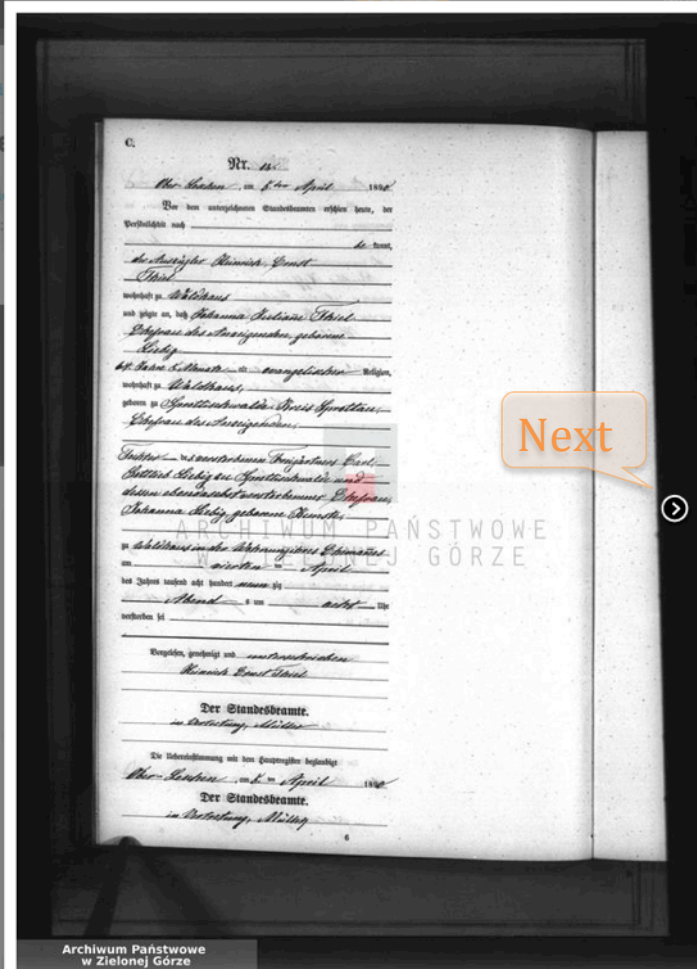 C.
Nr.
Ober-Leschen am 5ten April 1890
Vor dem unterzeichneten Standesbeamten erschien heute, der
Persönlichkeit nach
be kannt,
der Auszügler Heinrich Ernst
Thiel
wohnhaft zu Waldhaus
und zeigte an, daß Johanna Juliane Thiel
Ehefrau des Anzeigenden, geborene
Liebig
64 Jahre 5 Monate evangelischer Religion,
wohnhaft zu Waldhaus,
geboren zu Kreis Sprottau,
Ehefrau des Anzeigenden,
Tochter des verstorbenen Freigärtners Carl
Gottlieb Liebig zu und
dessen ebendaselbst verstorbenen Ehefrau,
Johanna Liebig, geborene
ARCHIWUM PAŃSTWOWE
W ZIELONEJ GÓRZE
zu Waldhaus in der Wohnung ihres Ehemannes
am vierten April
des Jahres tausend acht hundert neun zig
Abend s um acht Uhr
verstorben sei
Vorgelesen, genehmigt und unterschrieben
Heinrich Ernst Thiel
Der Standesbeamte.
in Vertretung, Müller
Die Uebereinstimmung mit dem Hauptregister beglaubigt
Ober-Leschen am 5 ten April 1890
Der Standesbeamte.
in Vertretung, Müller
6
Next
Archiwum Państwowe
w Zielonej Górze